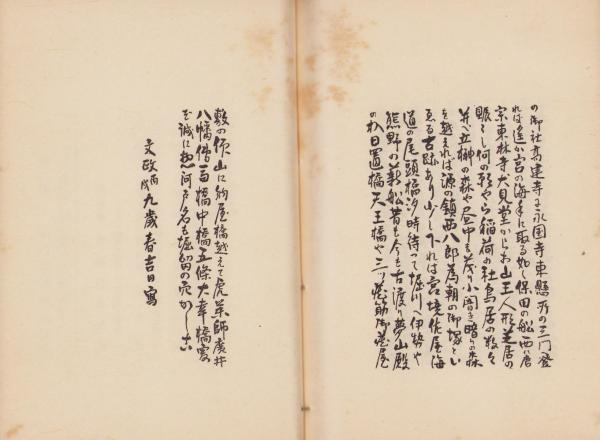 の御社高建寺に永国寺東懸所の三門登
れば遥か宮の海手に取る如し保田の船西に唐
宗東林寺犬見堂からお山王人形芝居の
賑はし何の形やら稲荷の社鳥居の数々
並べ立榊の森や昼中も茂り小闇き暗りの森
を越えれば源の鎮西八郎為朝の御塚とい
ゑる古跡あり少し下れば宮境佐屋海
道の尾頭橋汐時待って堀川へ伊勢や
熊野の薪船昔も今も古渡り夢山殿
の 日置橋天王橋や三ツ蔵筋御蔵屋
藪の 山に納屋橋越えて虎薬師廣井
八幡借馬橋中橋五條大幸橋実
を誠に 河戸名も堀留の
文政丙戌九歳春吉日寫